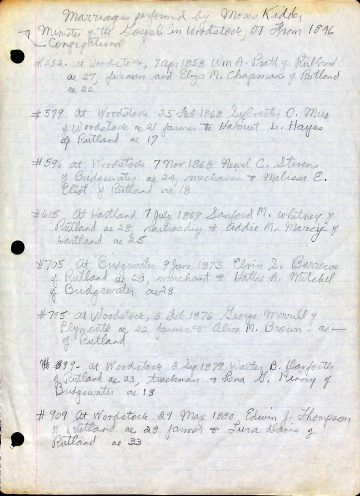 Marriages performed by Moses Kidder
Minister of the Gospel in Woodstock, Vt from 1846
Congregational
#252. at Woodstock, 7 Apr 1858 Wm A. Pratt of Rutland
ae 27, fireman and Eliza M. Chapman of Rutland
ae 22
#579 At Woodstock 25 Feb 1868 Sylvester O.
of Woodstock ae 21 farmer to Harriet L. Hayes
of Rutland ae 17
#596 At Woodstock 7 Nov 1868 C. Stevens
of Bridgewater ae 24, mechanic & Melissa E.
of Rutland ae 18
#615 At Hartland 7 July 1869 Sanford M. Whitney of
Rutland ae 28, railroading & Addie M. Marcy of
Hartland ae 25
#705 At Bridgewater 9 June 1873 Elvin S. Barrows
of Rutland ae 29, merchant & Hattie A. Mitchel
of Bridgewater ae 28
#795 At Woodstock, 5 Oct 1876 George Merrill of
Plymouth ae 22 farmer & Alice M. Brown - ae —
of Rutland
# 889- at Woodstock 3 Sep 1879 Walter B. Danforth
of Rutland ae 23, truckman & Lena G. Pinney of
Bridgewater ae 18
#909 At Woodstock 29 May 1880 Edwin J. Thompson
of Rutland ae 28 farmer & Lura Davis of
Rutland ae 33